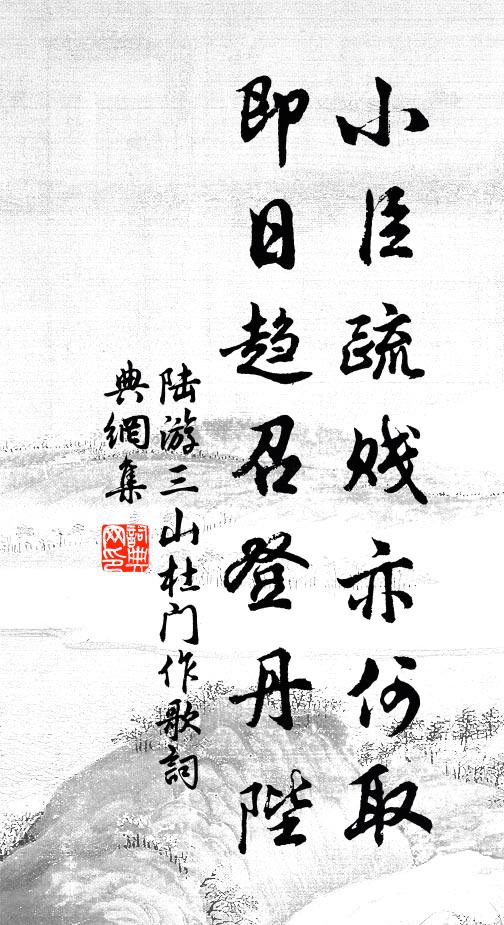 小臣疏賤亦何取
即日趨召登丹陛
陸游三山杜门作歌詞
典網集
詞典
网印